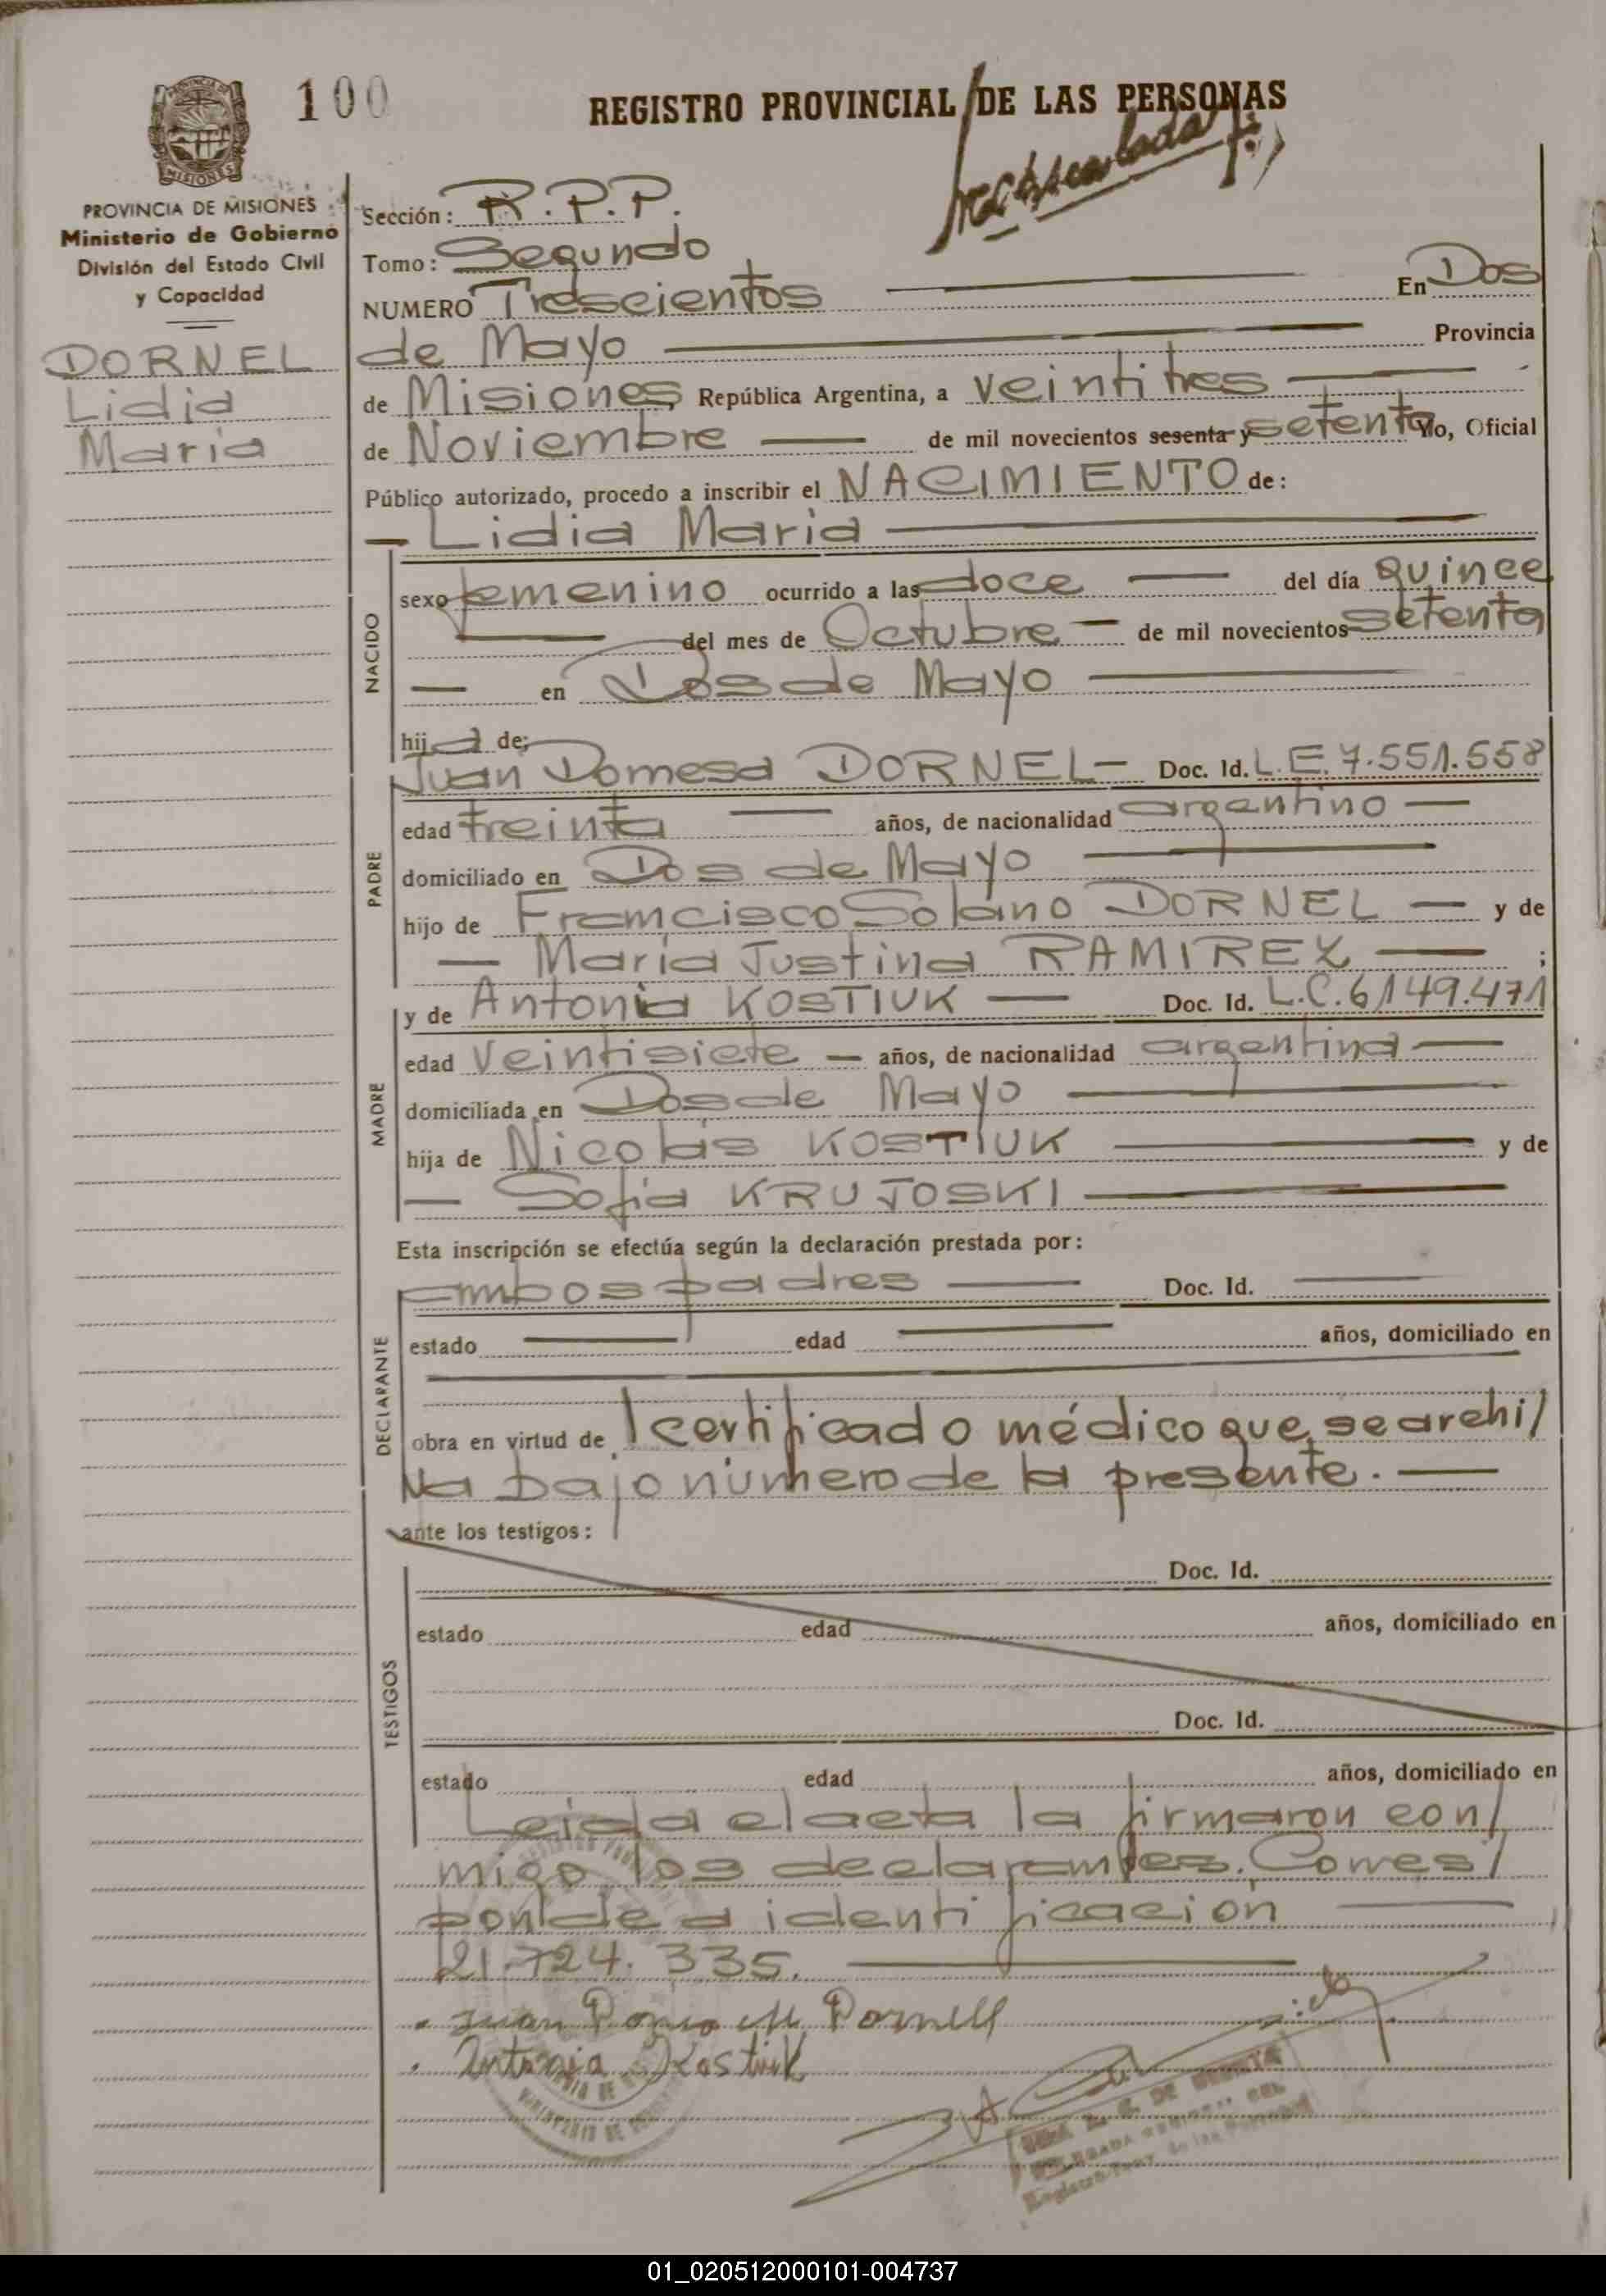 100
REGISTRO PROVINCIAL DE LAS PERSONAS
MISIONES
PROVINCIA DE MISIONES
Ministerio de Gobierno
División del Estado Civil
y Capacidad
DORNEL
Lidia
Maria
Sección: R.P.P.
Tomo: Segundo
NUMERO Trescientos En Dos
de Mayo Provincia
de Misiones República Argentina, a veintitres
de Noviembre de mil novecientos sesenta y setenta Yo, Oficial
Público autorizado, procedo a inscribir el NACIMIENTO de:
Lidia Maria
NACIDO
sexo femenino ocurrido a las doce del día quince
del mes de Octubre de mil novecientos setenta
en Dos de Mayo
hija de:
Juan Domesa DORNEL Doc. Id. L.E. 7.551.558
PADRE
edad treinta años, de nacionalidad argentino
domiciliado en Dos de Mayo
hijo de Francisco Solano DORNEL y de
María Justina RAMIREZ ;
y de Antonia KOSTIUK Doc. Id. L.C. 6149.471
MADRE
edad veintisiete años, de nacionalidad argentina
domiciliada en Dos de Mayo
hija de Nicolás KOSTIUK y de
Sofia KRUJOSKI
Esta inscripción se efectúa según la declaración prestada por:
ambos padres Doc. Id.
DECLARANTE
estado edad años, domiciliado en
obra en virtud de l certificado médico que se archi/
va bajo número de la presente.
ante los testigos:
TESTIGOS
Doc. Id.
estado edad años, domiciliado en
Doc. Id.
estado edad años, domiciliado en
Leida el acta la firmaron con/
migo los declarantes. Corres/
ponde a identificación
21.724.335.
Juan M. Dornell
Antonia Kostiuk
01_020512000101-004737